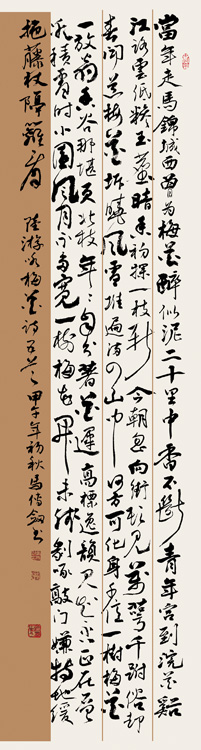 當年走馬錦城西曾為梅花醉似泥二十里中香不斷青羊宮到浣花谿
江路雲低糝玉塵暗香初探一枝新今朝忽向街頭見萬萼千跗俗卻
春聞道梅花坼曉風雪堆遍滿四山中何方可化身千億一樹梅花
一放翁幽谷那堪更北枝年年自分著花遲高標逸韻君知否正在層
冰積雪時小園風月不多寬一樹梅花開未殘剝啄敲門嫌特地緩
拖藤杖隔籬看 陸游咏梅花詩五首 甲午年初秋馬劍書